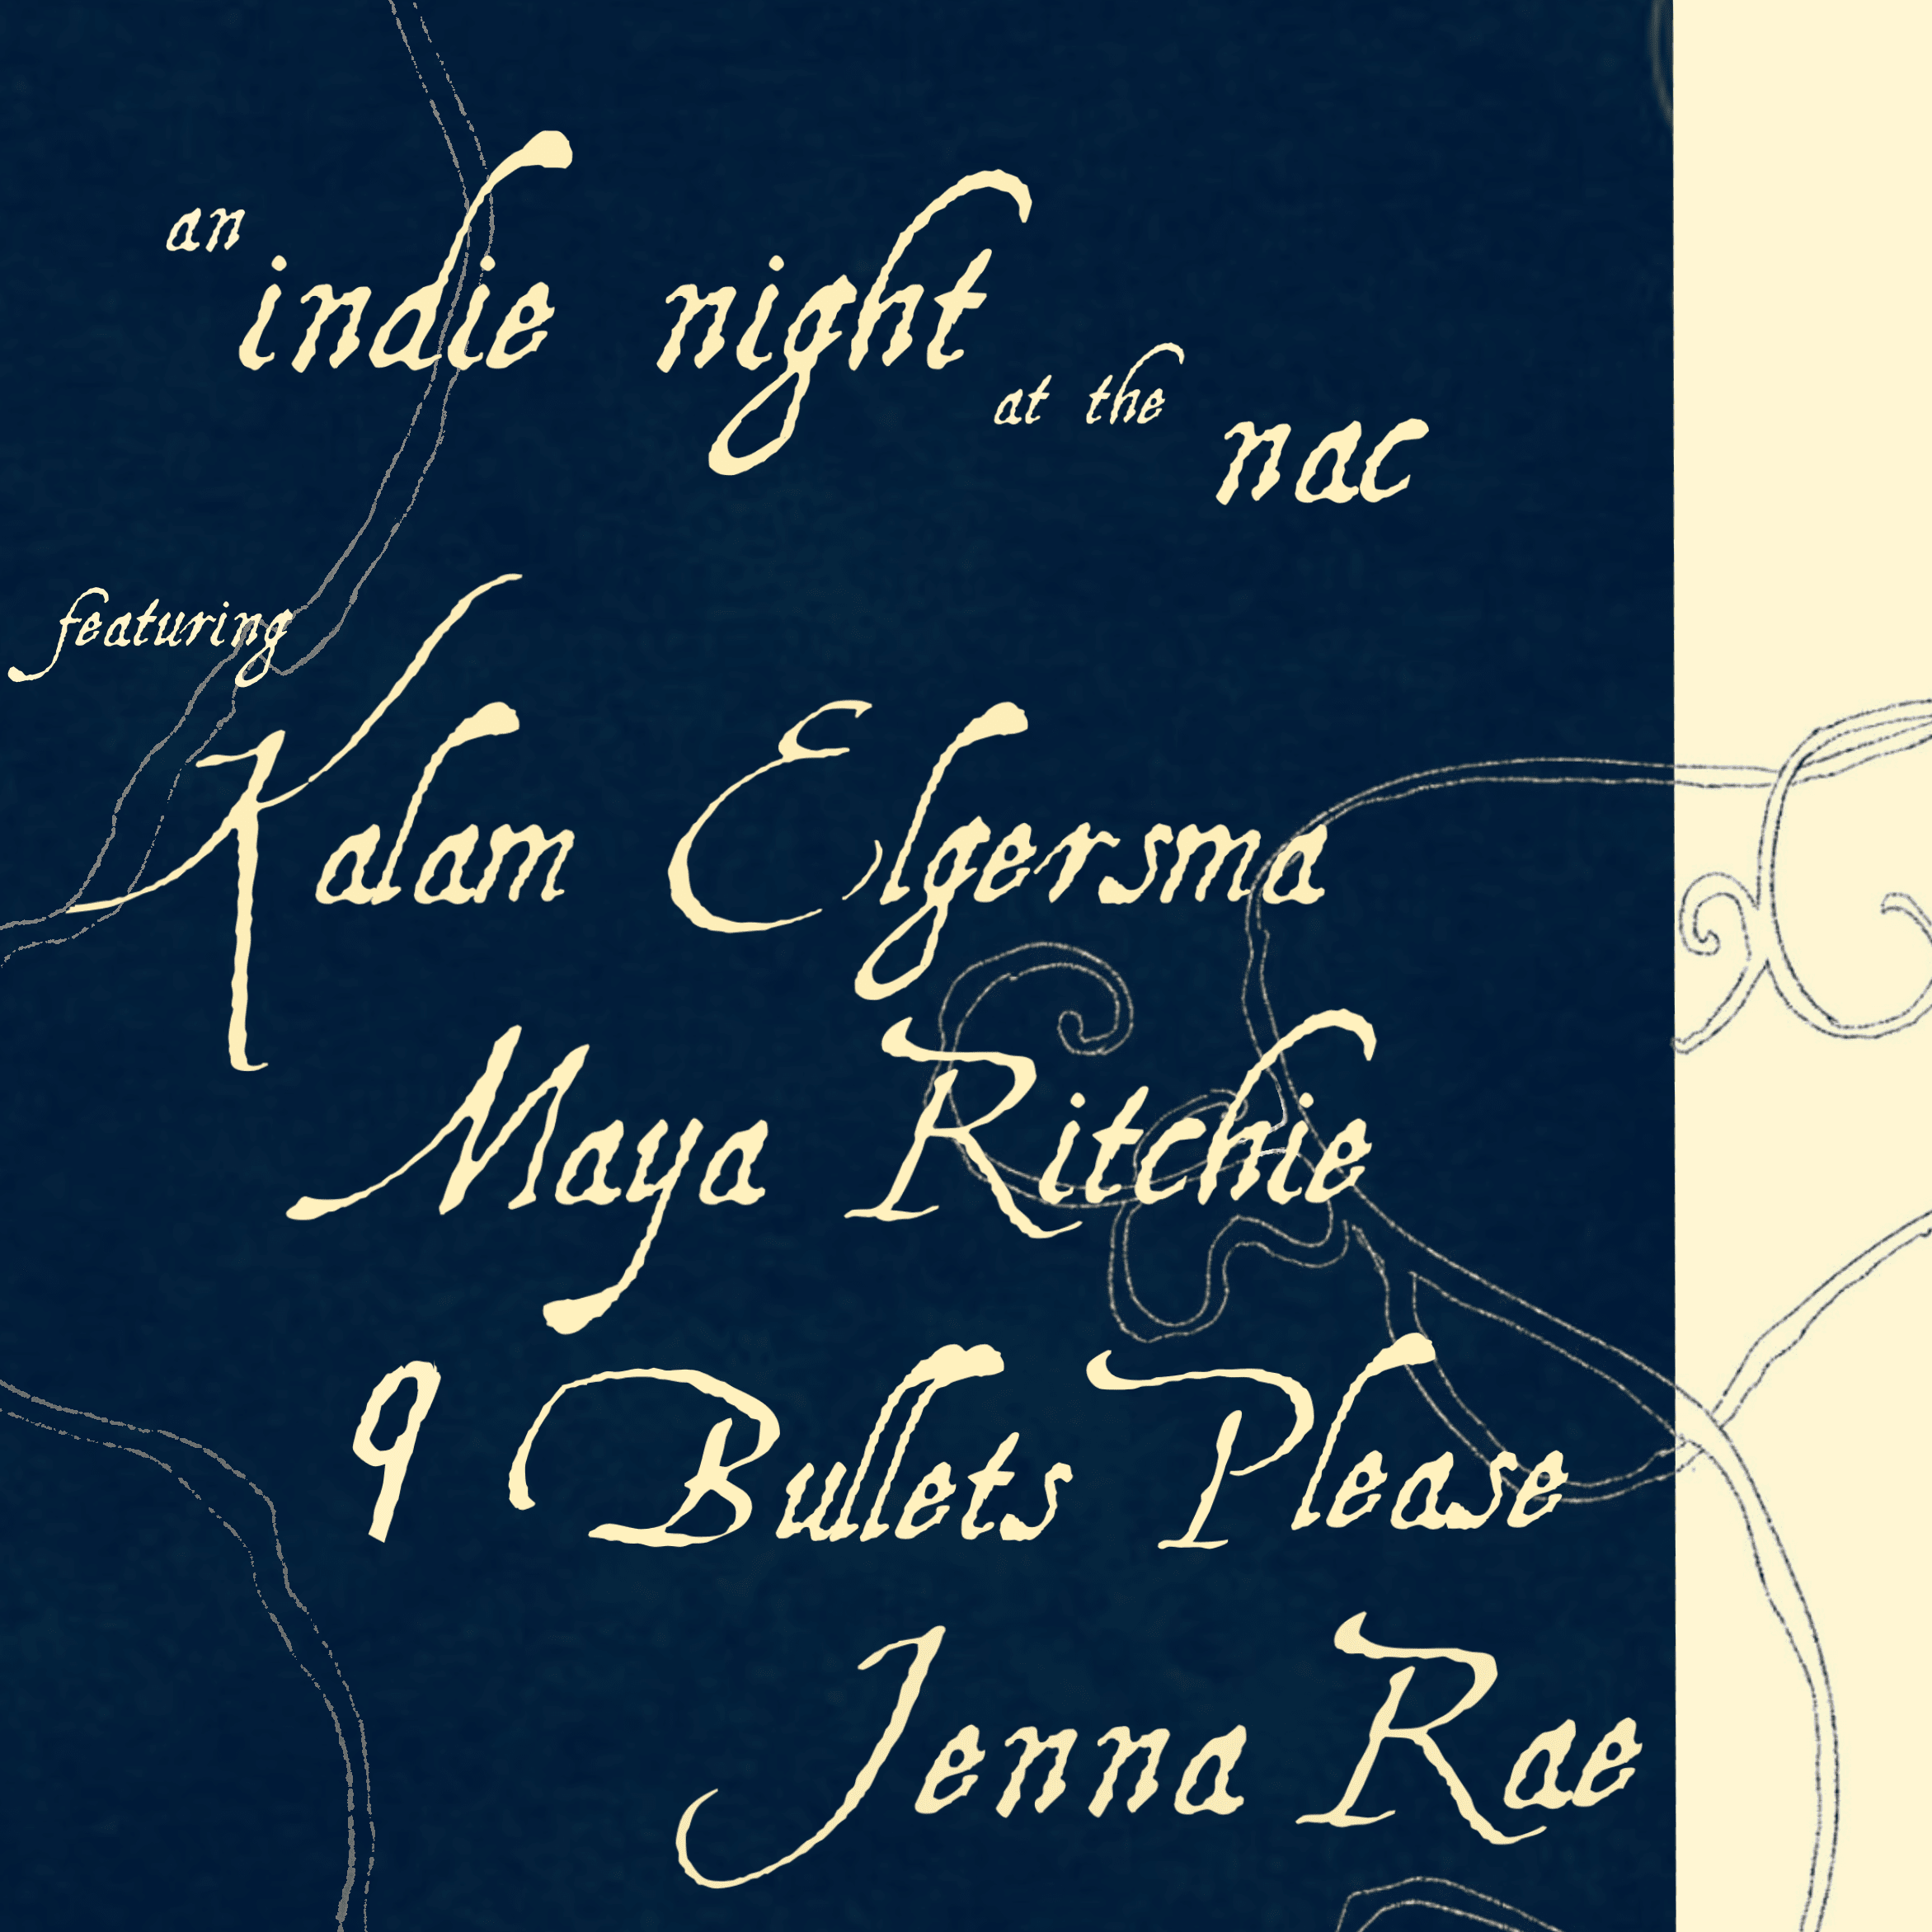 an
indie night
at the
nac
featuring
Kalam Elgersma
Maya Ritchie
9 Bullets Please
Jenna Rae